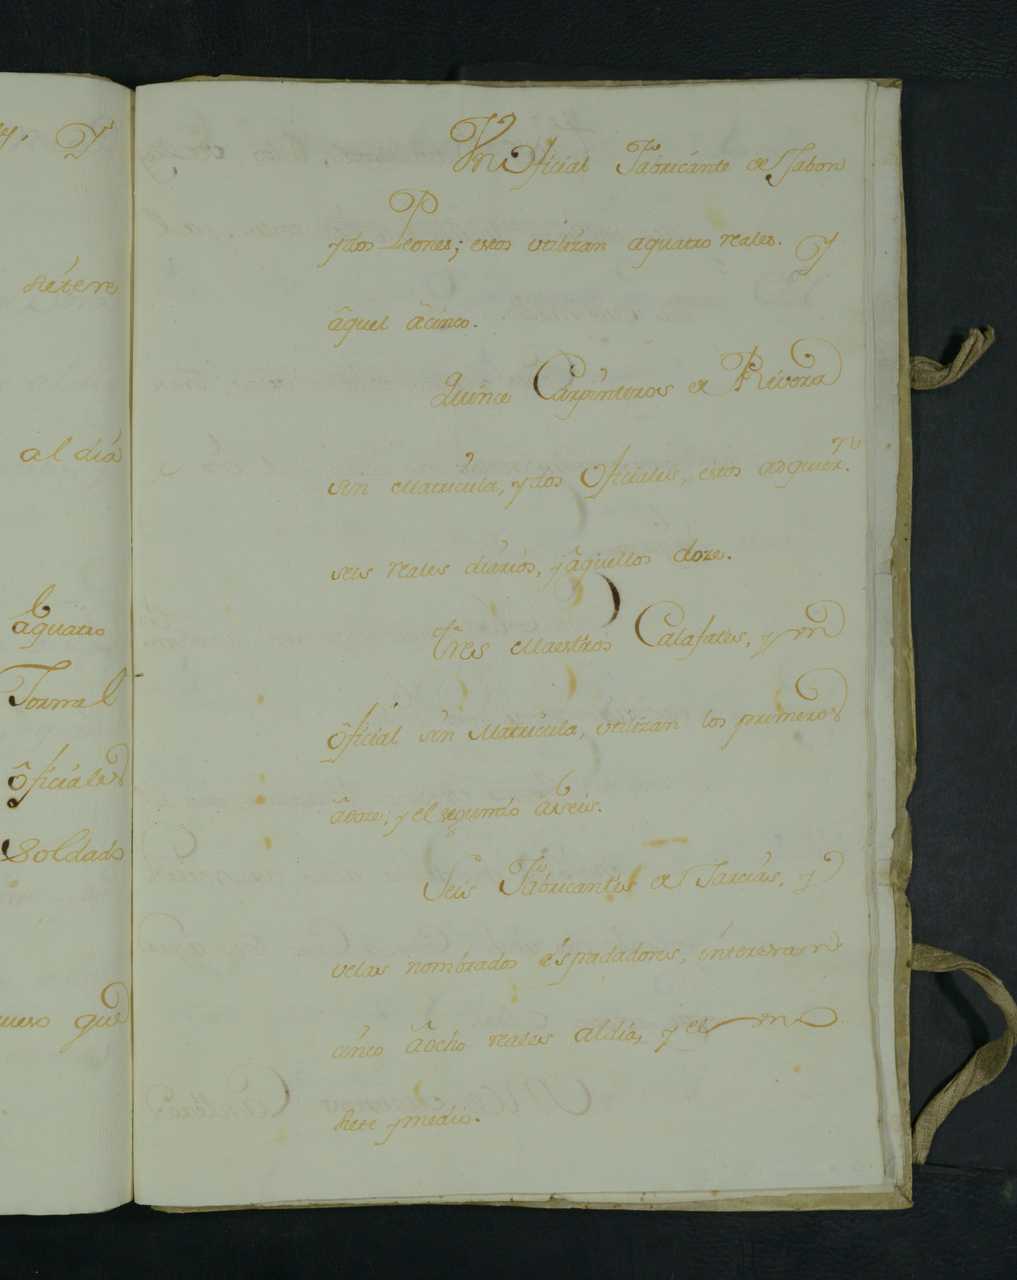 Y
siete re
al dia
âquatro
Jornal
ôficiales
soldado
que
Vn Oficial Fabricante de Jabon
y dos Peones; estos vtilizan a quatro reales. Y
âquel âcinco.
Quince Carpinteros de Rivera
sin Matricula, y dos Oficiales, estos adquier.n
seis reales diarios, y âquellos doze.
tres Maestros Calafates, y vn
ôficial sin Matricula, vtilizan los primeros
âdoze, y el segundo âseis.
Seis Fabricantes de Jarcias, y
velas nombrados espadadores, interesan
cinco âocho reales al dia, y el vno
siete y medio.